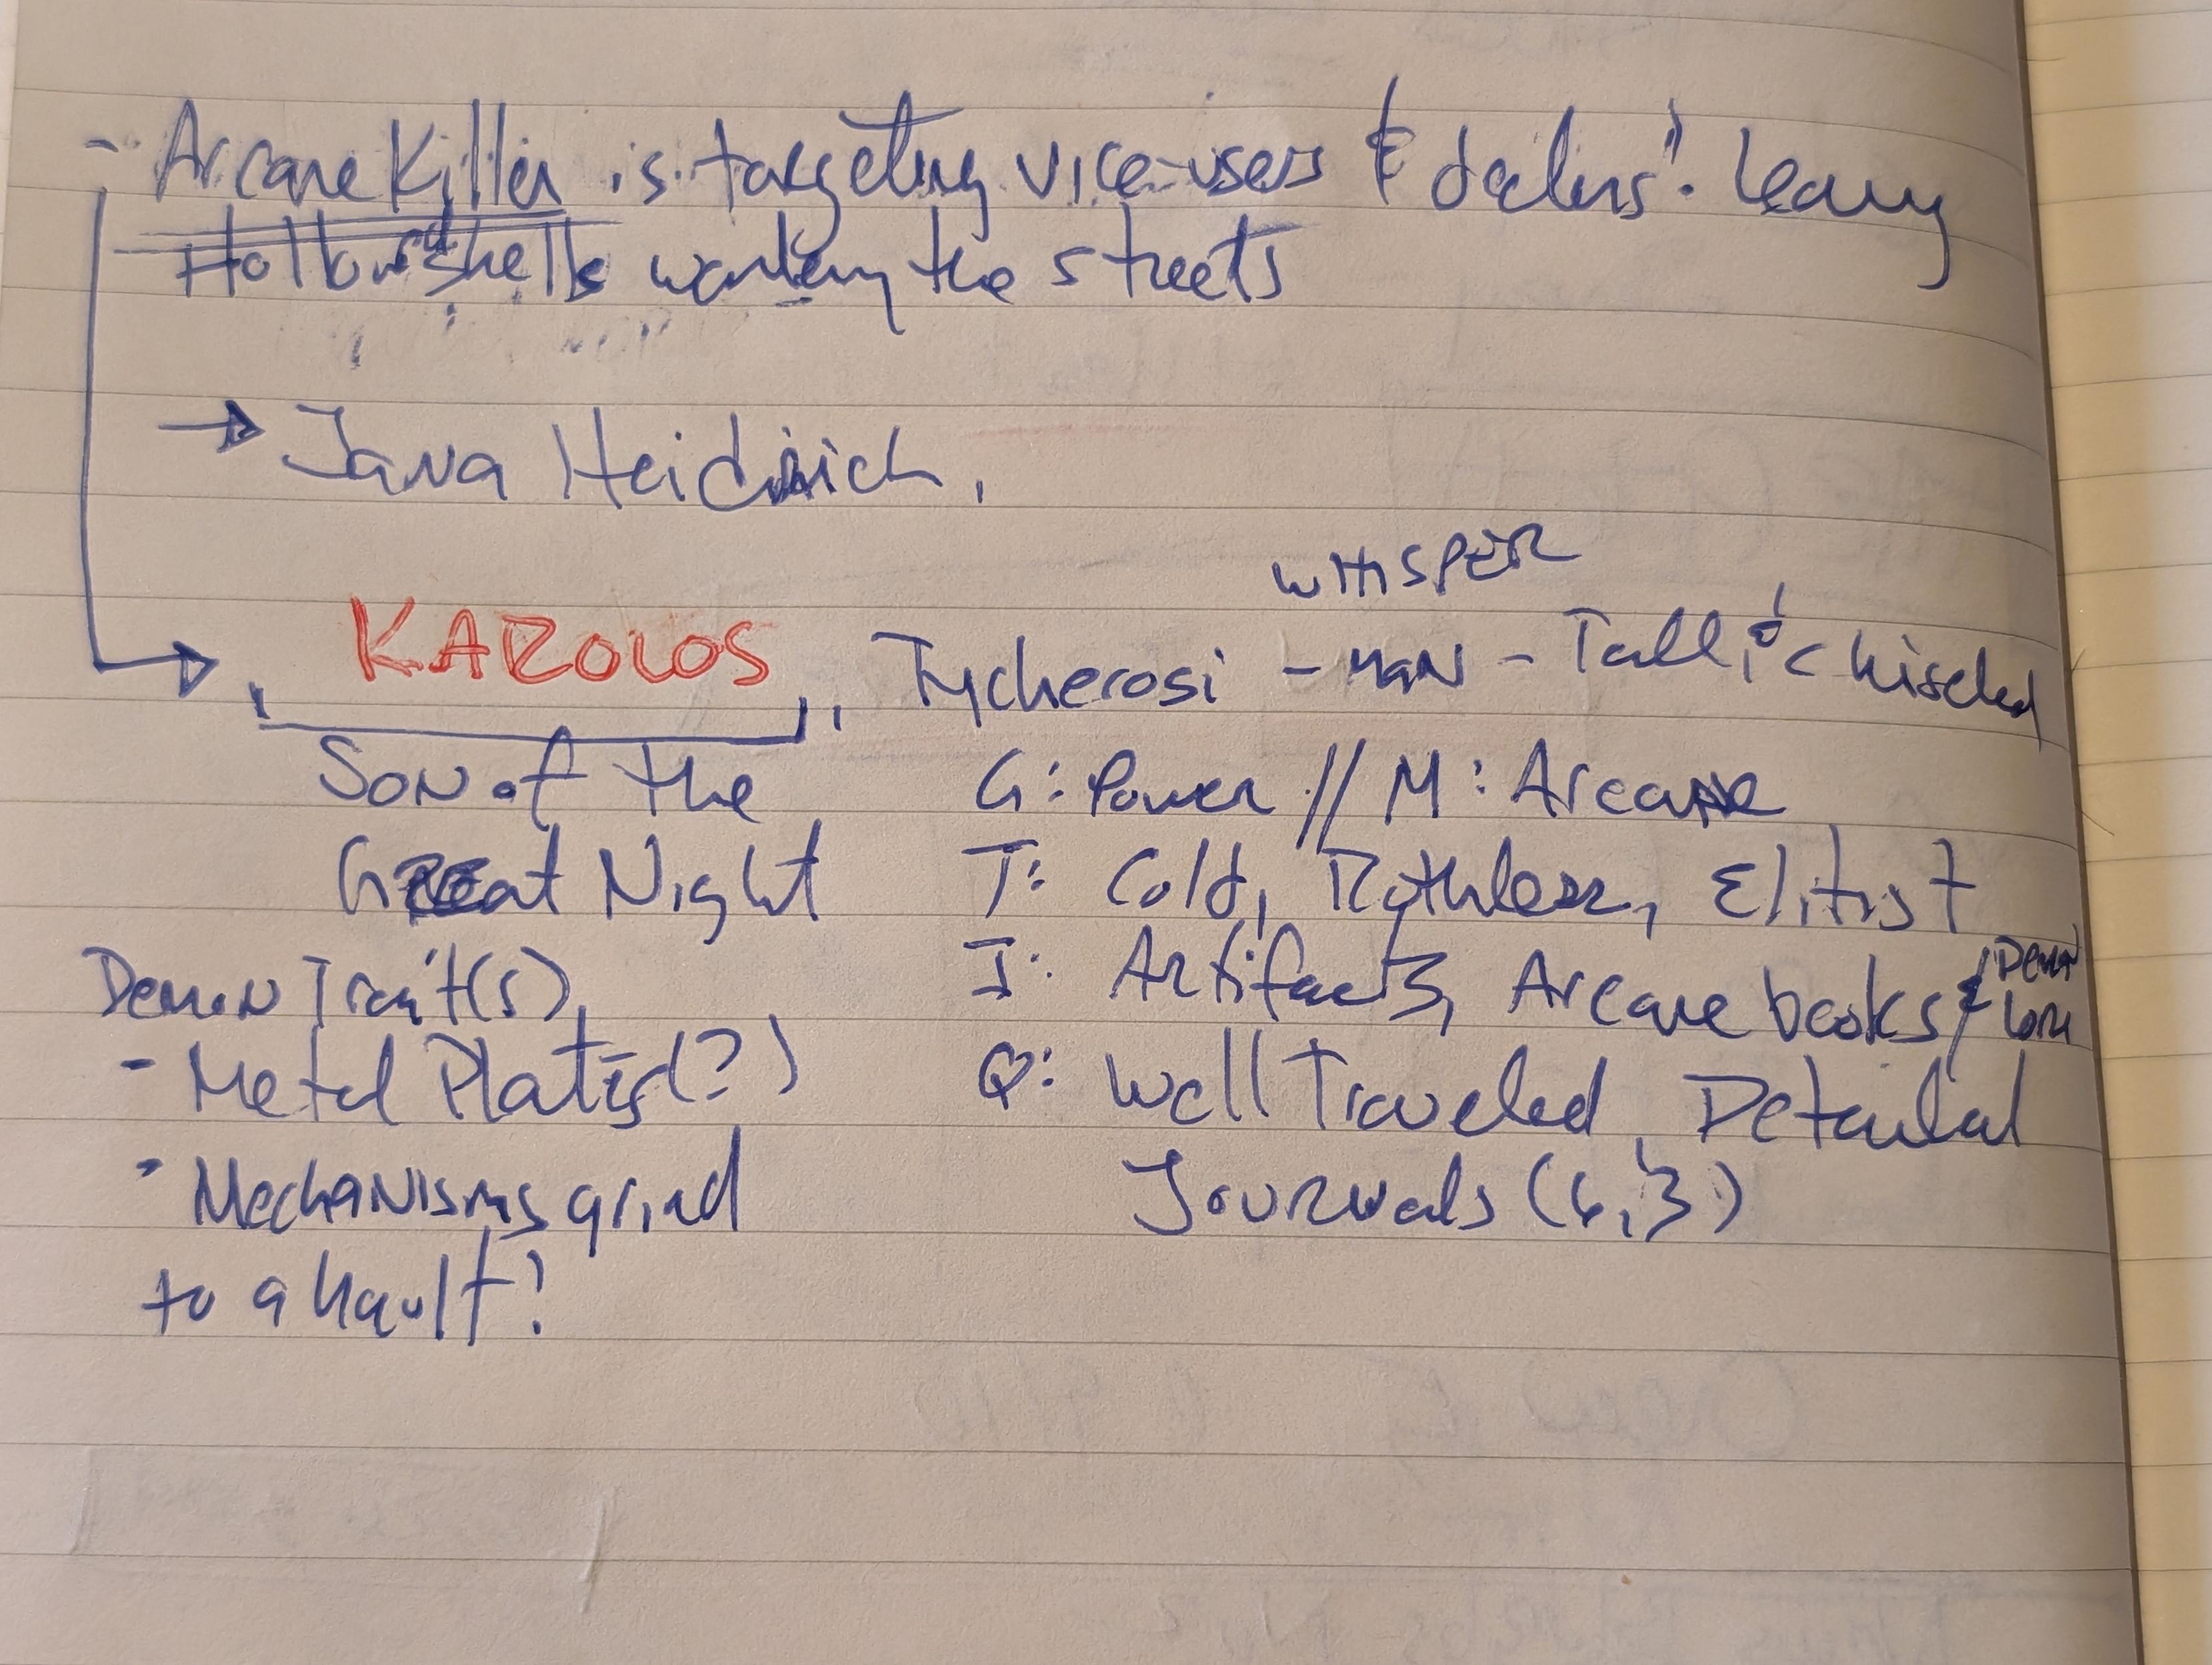 - Arcane Killer is targeting vice-users & dealers". Leaving
Hollow shells wandering the streets
→ Jana Heidrich,
WHISPER
KAROLOS, Tycherosi - MAN - Tall & chiseled
Son of the
Great Night
G: Power // M: Arcane
T: Cold, Ruthless, Elitist
I: Artifacts, Arcane books & Demon lore
Q: Well Traveled, Detailed
Journals (6,3)
Demon Trait(s)
- Metal Plates(?)
- Mechanisms grind
to a hault?